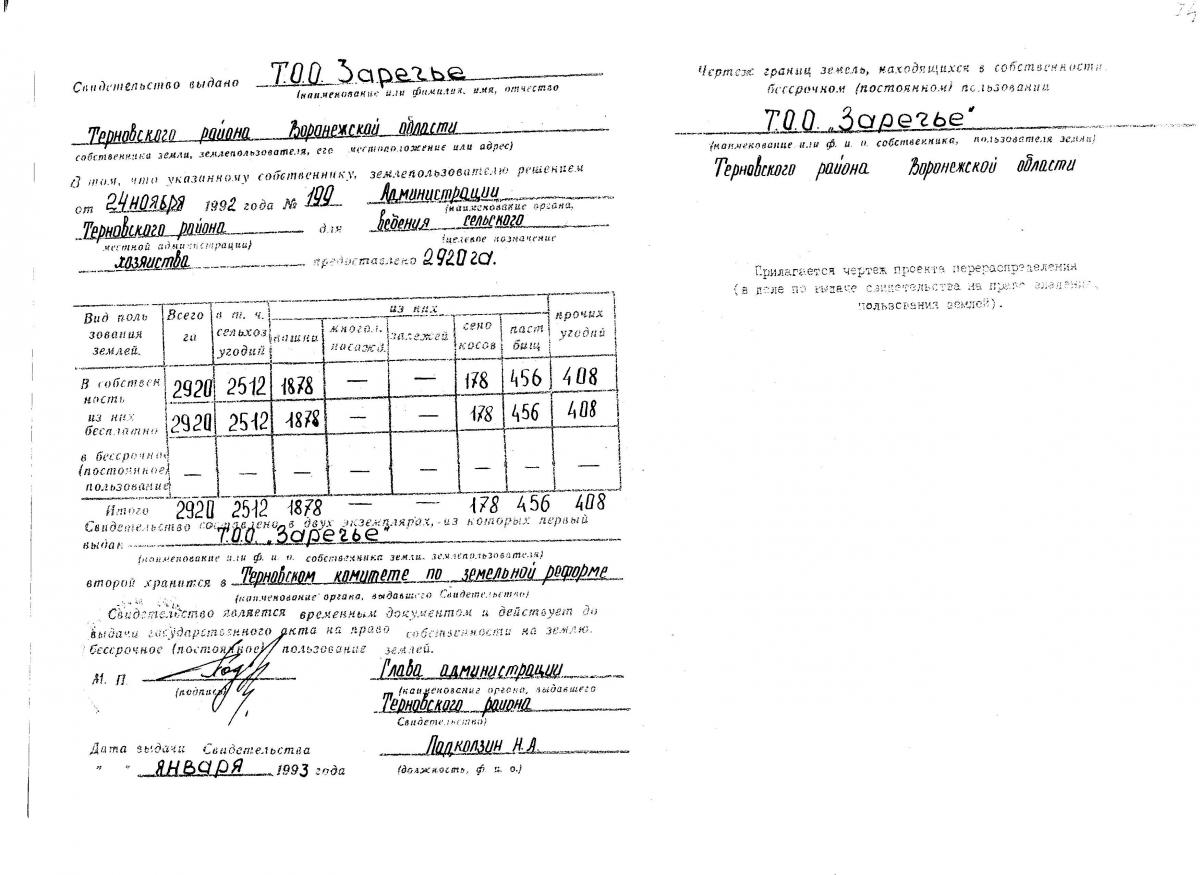 Свидетельство выдано Т.О.О. Заречье
(наименование или фамилия, имя, отчество
Терновского района Воронежской области
собственника земли, землепользователя, его местоположение или адрес)
В том, что указанному собственнику, землепользователю решением
от 24 ноября 1992 года № 199 Администрации
(наименование органа,
Терновского района для ведения сельского
местной администрации) (целевое назначение
хозяйства предоставлено 2920 га.
Вид поль зования землей. Всего га в т. ч. сельхоз угодий из них прочих угодий
пашни многол. насажд. залежей сено косов паст бищ
В собствен ность 2920 2512 1878 — — 178 456 408
из них бесплатно 2920 2512 1878 — — 178 456 408
в бессрочное (постоянное) пользование — — — — — — — —
Итого 2920 2512 1878 — — 178 456 408
Свидетельство составлено в двух экземплярах, из которых первый
выдан Т.О.О. „Заречье"
(наименование или ф. и. о. собственника земли, землепользователя)
второй хранится в Терновском комитете по земельной реформе
(наименование органа, выдавшего Свидетельство)
Свидетельство является временным документом и действует до
выдачи государственного акта на право собственности на землю.
бессрочное (постоянное) пользование землей.
М. П. Глава администрации
(подпись) (наименование органа, выдавшего
Терновского района
Свидетельство)
Дата выдачи Свидетельства Подколзин Н.А.
" " января 1993 года (должность, ф. и. о.)
74
Чертеж границ земель, находящихся в собственности,
бессрочном (постоянном) пользовании
Т.О.О. „Заречье"
(наименование или ф. и. о. собственника, пользователя земли)
Терновского района Воронежской области
Прилагается чертеж проекта перераспределения
(в деле по выдаче свидетельства на право владения,
пользования землей).